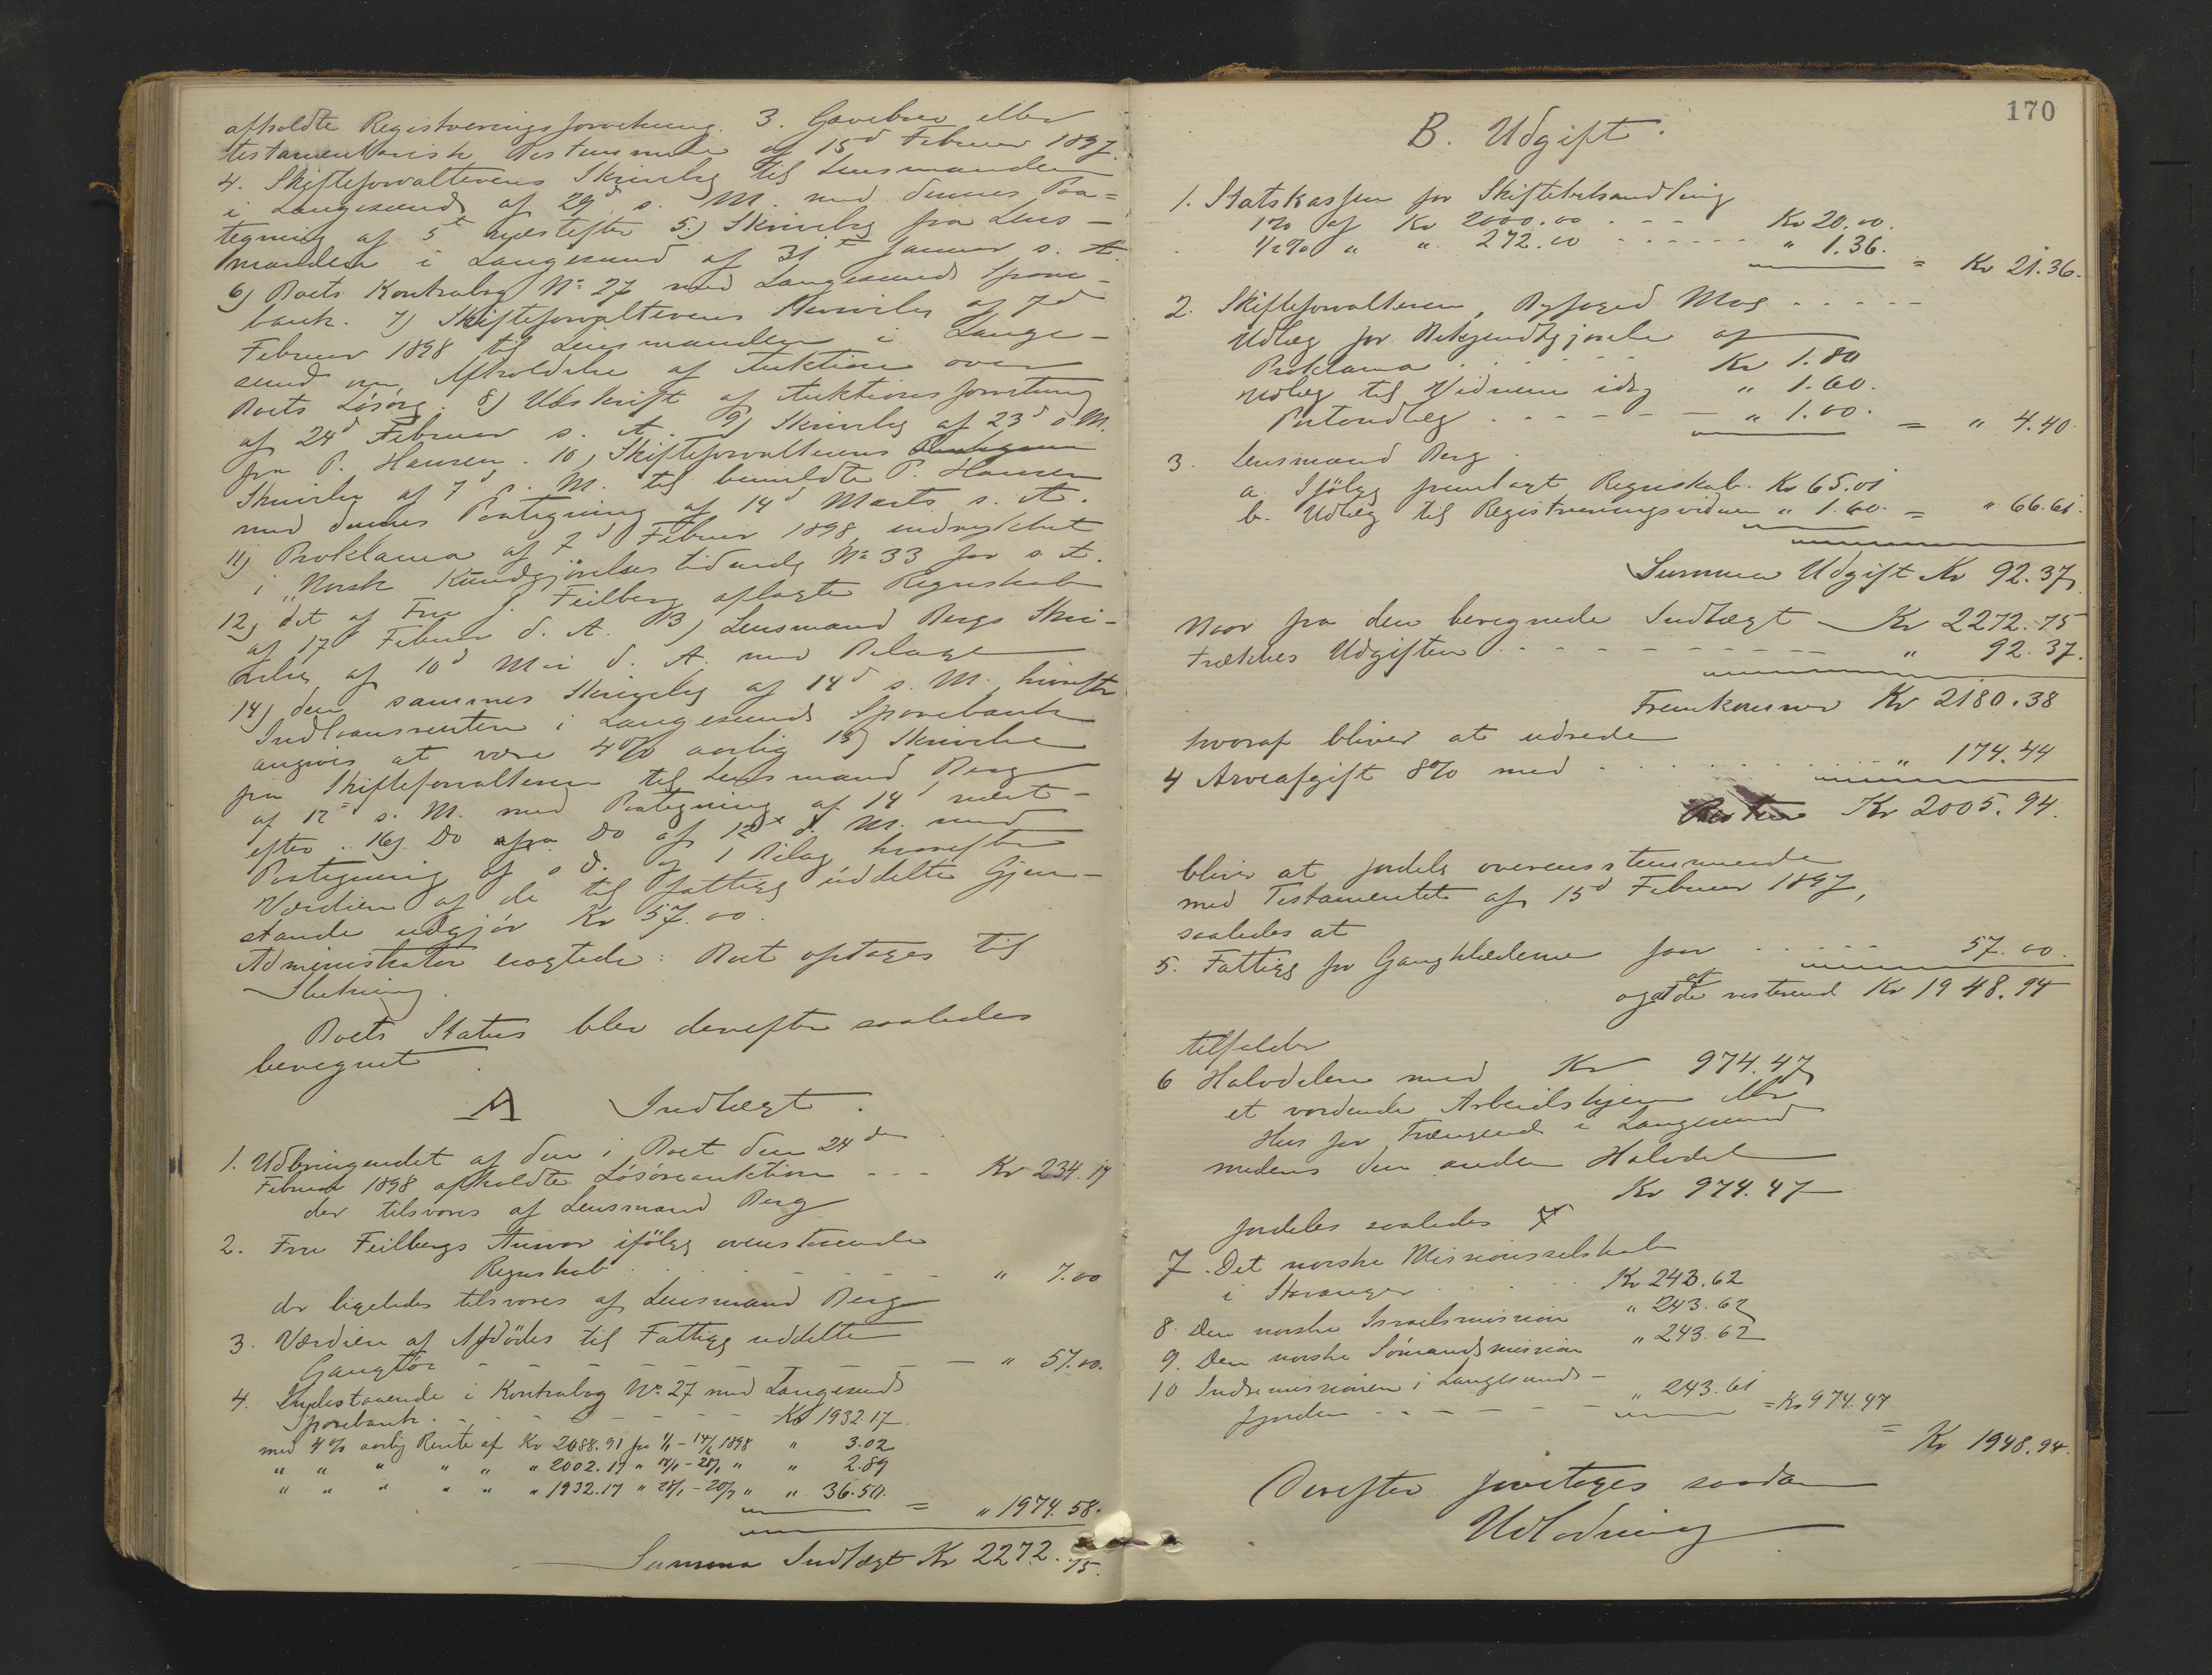 afholdte Registreringsforretning. 3. Gavebrev eller
testamentarisk Bestemmelse af 15d Februar 1897.
4. Skifteforvalterens Skrivelse til Lensmanden
i Langesund af 29d s. M. med dennes Paa=
tegning af 5t næstefter 5.) Skrivelse fra Lens-
manden i Langesund af 31t Januar s. A.
6) Boets Kontrabog No 27 med Langesunds Spare-
bank. 7) Skifteforvalterens Skrivelse af 7d
Februar 1898 til Lensmanden i Lange-
sund om Afholdelse af Auktion over
Boets Løsøre. 8) Udskrift af Auktionsforretning
af 24d Februar s. A. 9) Skrivelse af 23d s. M.
fra P. Hansen. 10) Skifteforvalterens
Skrivelse af 7d s. M. til bemeldte P. Hansen
med dennes Paategning af 14d Marts s. A.
11) Proklama af 7d Februar 1898 indrykket
i "Norsk Kundgjørelsestidende No 33 for s. A.
12) det af Fru J. Feilberg aflagte Regnskab
af 17d Februar d. A. 13) Lensmand Bergs Skri-
velse af 10d Mai d. A. med Bilage
14) den sammes Skrivelse af 14d s. M., hvorefter
Indlaansrenten i Langesunds Sparebank
angives at være 4% aarlig 15) Skrivelse
fra Skifteforvalteren til Lensmand Berg
af 12te s. M. med Paategning af 14d næst-
efter. 16) Do fra Do af 12te d. M. med
Paategning af s. d. og 1 Bilag hvorefter
Værdien af de til fattige uddelte Gjen-
stande udgjør Kr 57.00.
Administrator eragtede: Boet optages til
Slutning.
Boets Status blev derefter saaledes
beregnet.
A Indtægt.
1. Udbringendet af den i Boet den 24de
Februar 1898 afholdte Løsøreauktion - - - Kr 234.17
der tilsvares af Lensmand Berg
2. Fru Feilbergs Ansvar ifølge ovenstaaende
Regnskab . . - - - - - " 7.00
der ligeledes tilsvares af Lensmand Berg
3. Værdien af Afdødes til Fattige uddelte
Gangtøi - - - - - - - - - " 57.00.
4. Indestaaende i Kontrabog No 27 med Langesunds
Sparebank. - - - - - - Kr 1932.17.
med 4% aarlig Rente af Kr 2088.91 fra 1/1-14/1 1898 " 3.02
" " " " " " 2002.17 " 14/1-28/1 " " 2.89
" " " " " " 1932.17 " 28/1-20/7 " " 36.50. = " 1974.58.
Summa Indtægt Kr 2272.75.
170
B. Udgift.
1. Statskassen for Skiftebehandling
1% af Kr 2000.00 - - - Kr 20.00.
1/2% " " 272.00 - - - - - " 1.36. = Kr 21.36.
2. Skifteforvalteren, Byfoged Moe - - - - -
Udlæg for Bekjendtgjørelse af
Proklama . . . . . . Kr 1.80
Udlæg til Vidnerne idag " 1.60.
Portoudlæg . - - - - - " 1.00. = " 4.40.
3. Lensmand Berg.
a. Ifølge fremlagt Regnskab. Kr 65.01
b. Udlæg til Registreringsvidner " 1.60. = " 66.61.
Summa Udgift Kr 92.37
Naar fra den beregnede Indtægt - Kr 2272.75
trækkes Udgiften . - - - - - - " 92.37.
Fremkommer Kr 2180.38
hvoraf bliver at udrede
4 Arveafgift 8% med . . . . . . . " 174.44
Resten Kr 2005.94.
bliver at fordele overensstemmende
med Testamentet af 15d Februar 1897,
saaledes at
5. Fattige for Gangklæderne faar . . - - - 57.00.
og at af de resterende Kr 1948.94
tilfalder
6 Halvdelen med Kr 974.47
et vordende Arbeidshjem eller
Hus for Trængende i Langesund
medens den anden Halvdel
Kr 974.47
fordeles saaledes
7. Det norske Missionsselskab
i Stavanger . . . . Kr 243.62
8. Den norske Israelsmission " 243.62
9. Den norske Sømandsmission " 243.62
10 Indremissionen i Langesunds-
fjorden - - - - - - " 243.61 = Kr 974.47
= Kr 1948.94.
Derefter foretoges saadan
Udlodning